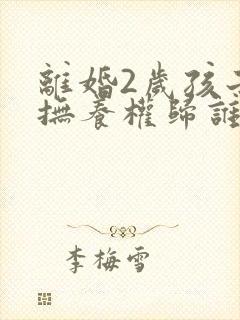 離婚2歲孩子
撫養權歸誰
李梅雪